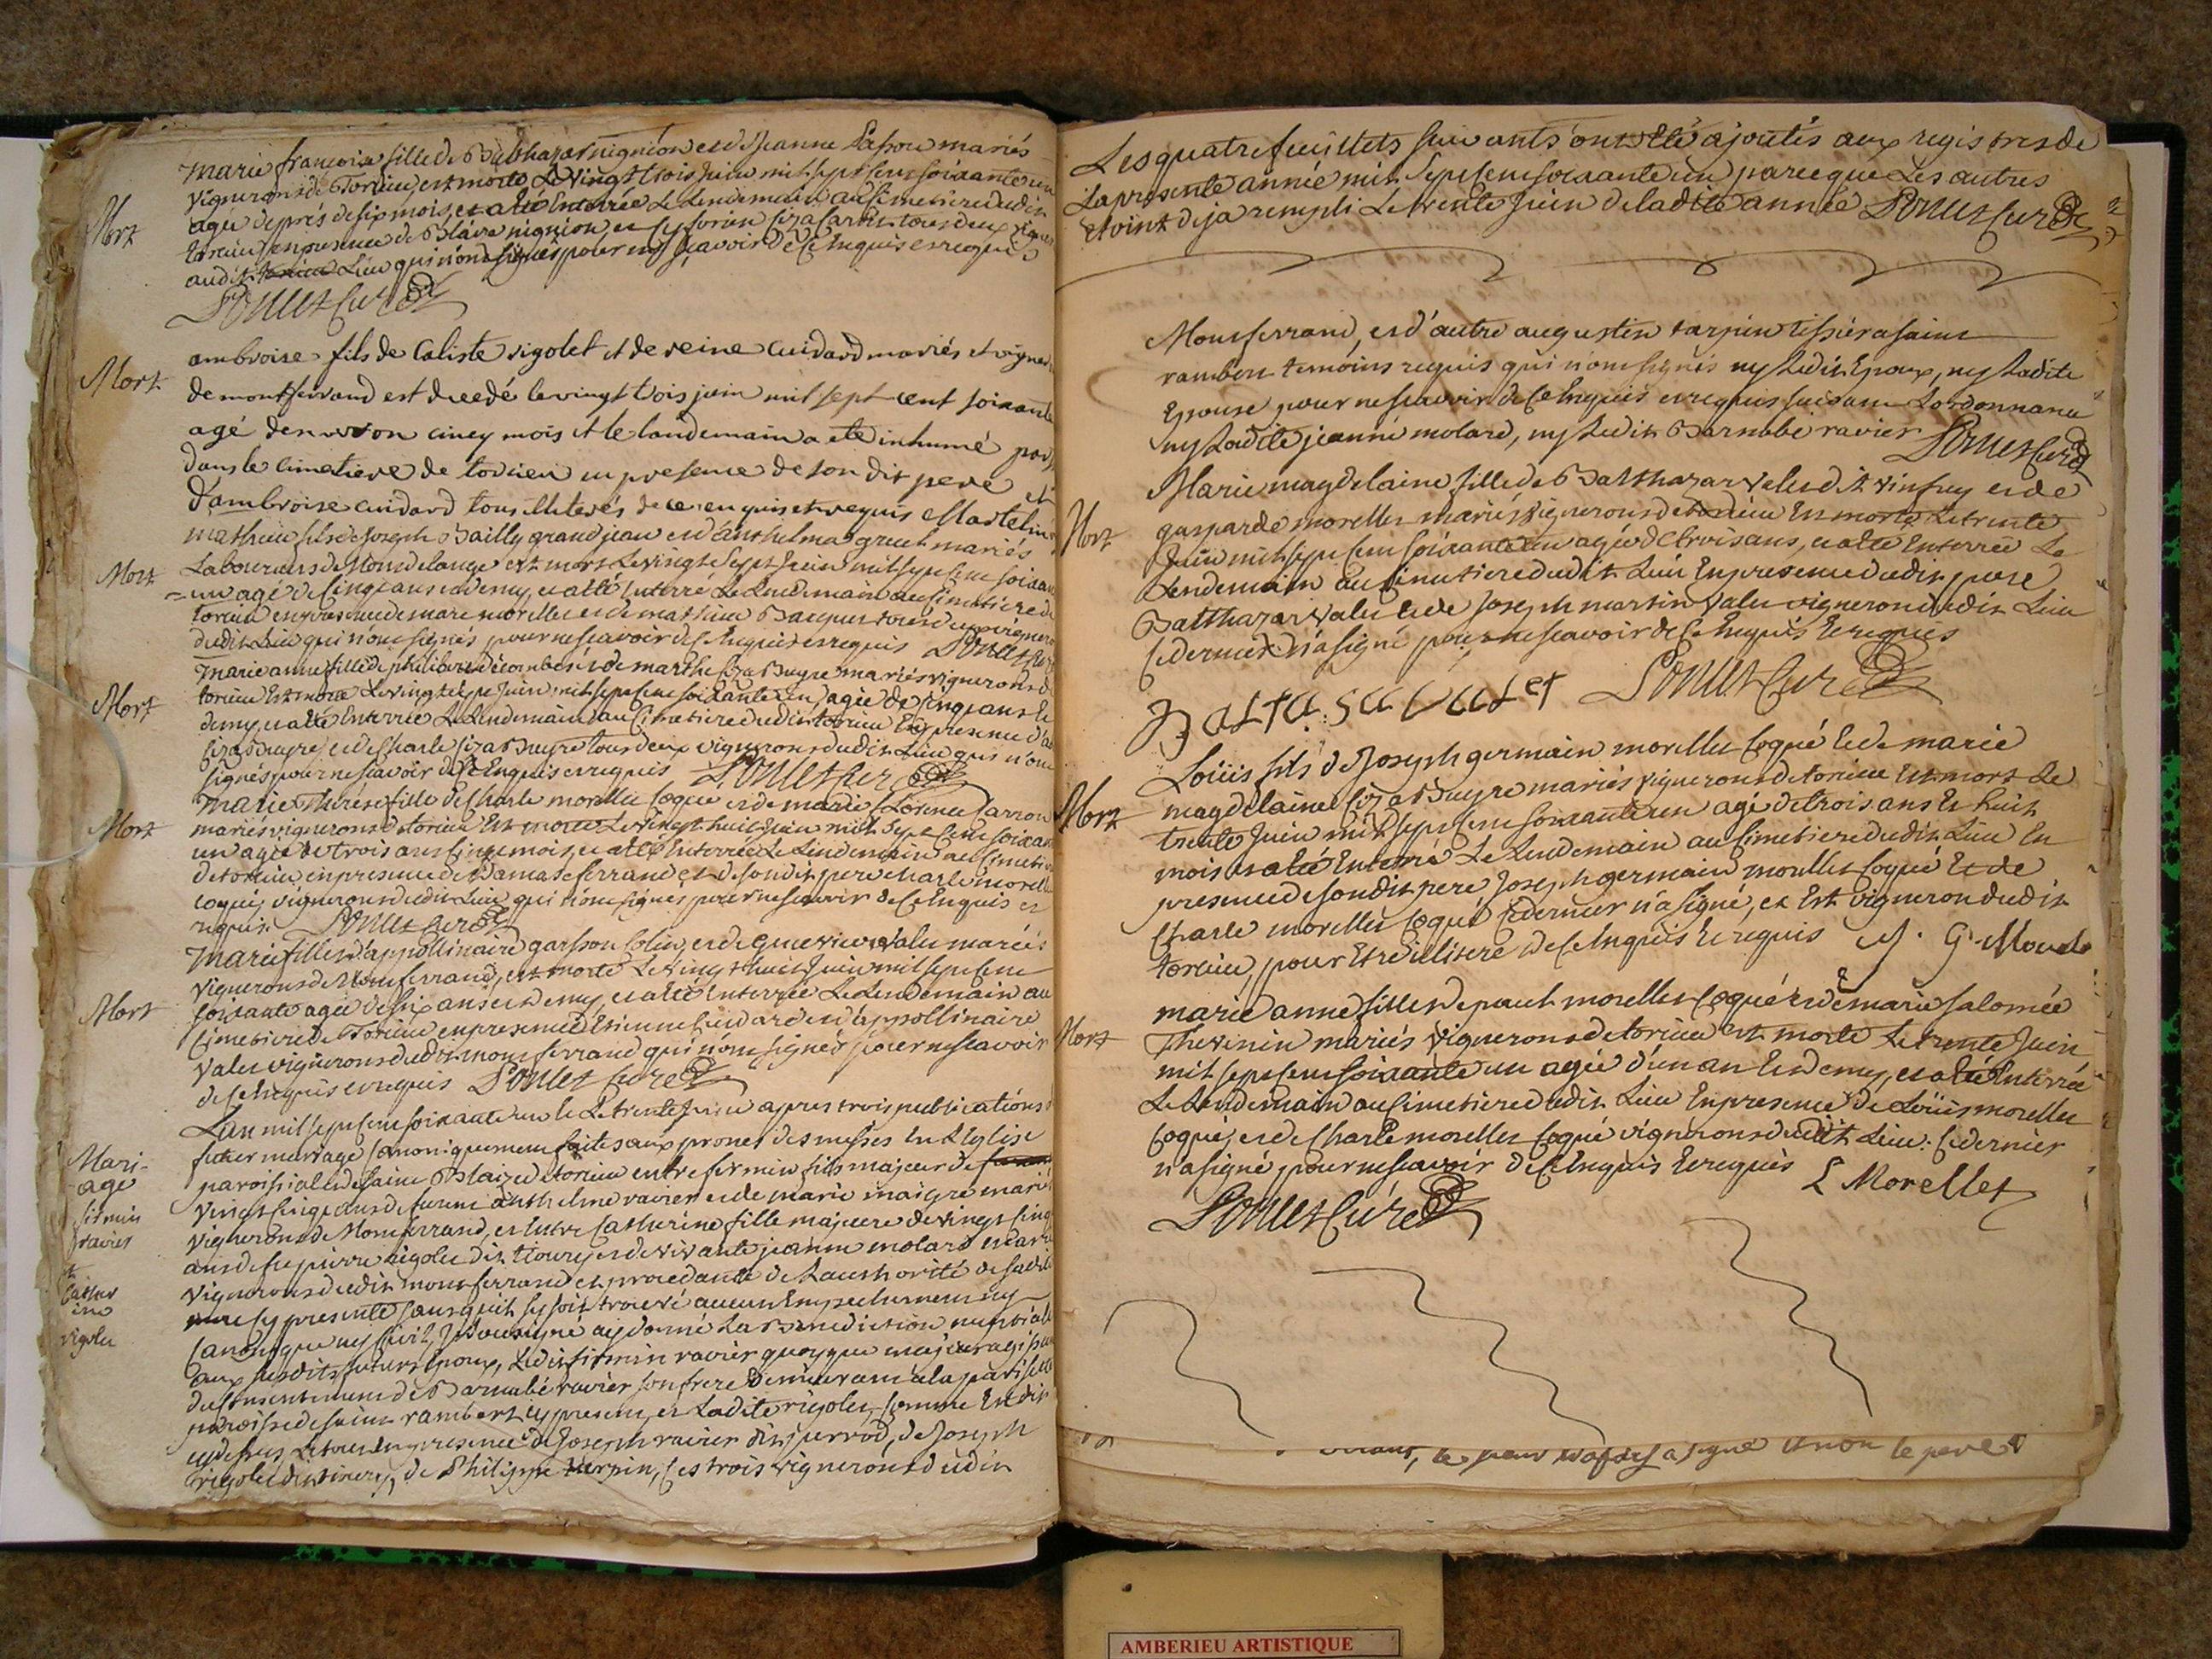 Marie françoise fille de Balthazar nignion et de Jeanne mariés
vignerons de Torcieu, est morte Le vingt trois Juin mil sept cent soixante un
Mort
agée de prés de six mois, et a été Enterrée Le Lendemain au Cimetiere dudit
torcieu en presence de Blaise nignion, et tous deux
audit Lieu qui n'ont signés pour ny sçavoir de ce Enquis et requis
Ponset Curé
Mort
ambroise fils de Caliste rigolet et de reine Cuidard mariés et
de montferrand est decedé le vingt trois juin mil sept cent soixante
agé denviron cincq mois et le landemain a eté inhumé par
dans le cimetiere de torcieu en presence de son dit pere et
d'ambroise cuidard tous illiterés de ce enquis et requis
mathieu fils de Joseph Bailly grand jean et d'anthelma mariés
Mort
Laboureurs de est mort Le vingt sept Juin mil sept cent
un agé de Cinq ans et demy, et a été Enterré Le Lendemain au Cimetiere de
torcieu en presence de marc morellet et de mathieu tous deux
dudit Lieu qui n'ont signés pour ne scavoir de ce Enquis et requis Ponset Curé
Marie anne fille de philibert et de marthe mariés vignerons de
Mort
torcieu Est morte Le vingt Juin mil sept cent soixante un, agée de Cinq ans Et
demy, et a été Enterrée Le Lendemain au Cimetiere dudit torcieu En presence
et de Charle tous deux vignerons dudit Lieu qui n'ont
signés pour ne scavoir de ce Enquis et requis Ponset Curé
Marie Therese fille de Charle morellet Coqué et de marie Lorence Carron
Mort
mariés vignerons de torcieu Est morte Le vingt huit Juin mil Sept Cent
un agée de trois ans Cinq mois, et a été Enterrée Le Lendemain au
de torcieu en presence de Damas ferrand et de son dit pere charle
coqué, vignerons dudit Lieu qui n'ont signés pour ne scavoir de ce Enquis et
requis. Ponset Curé
Marie fille d'appollinaire garsson Colin, et de Genevieve Valu mariés
vignerons de Montferrand, est morte Le vingt huit Juin mil sept Cent
Mort
soixante agée de six ans et demy, et a été Enterrée Le Lendemain au
Cimetiere de Torcieu en presence d'Etienne Cuidard et d'appollinaire
Valu vignerons dudit montferrand qui n'ont signés pour ne scavoir
de ce Enquis et requis Ponset Curé
L'an mil sept cent soixante un Et Le trente Juin apres trois publications
futur mariage Canoniquement faites aux prones des messes En L'Eglise
Mari-
age
firmin
ravier
et
Cather
ine
rigolet
paroissiale de saint Blaize de torcieu entre fermin fils majeur de
vingt Cinq ans de feu anthelme ravier et de marie maigre
vignerons de Montferrand, et Entre Catherine fille majeure de vingt Cinq
ans de feu pierre rigolet dit et de vivante jeanne molard
vignerons dudit montferrand et procedante de Lauthorité de sadite
mere cy presente sans qu'il sy soit trouvé aucun Empechement ny
Canonique ny Civil, Je Soussigné ay donné La Benediction nuptiale
aux susdits futurs Epoux, Ledit firmin ravier quoyque majeur
du Consentement de Barnabé ravier son frere demeurant à la
paroisse de saint rambert cy present, et Ladite rigolet, Comme Est dit
cy dessus, Le tout En presence de Joseph ravier dit de Joseph
rigolet dit de Philippe Ces trois vignerons dudit
Les quatre feuillets suivants ont été ajoutés aux registres de
La presente année mil sept cent soixante un parce que Les autres
etoint deja rempli Le trente Juin de ladite année Ponset Curé
Montferrand, et d'autre augustin tarpin tissier a saint
rambert temoins requis qui n'ont signés ny Ledit Epoux, ny Ladite
Epouse pour ne scavoir de ce Enquis et requis suivant Lordonnance
ny Ladite jeanne molard, ny Ledit Barnabé ravier Ponset Curé
Marie magdelaine fille de Balthazar Valu dit vinfrey et de
Mort
gasparde morellet mariés vignerons de torcieu Est morte Le trente
Juin mil sept cent soixante un agée de trois ans, et a été Enterrée Le
Lendemain au Cimetiere dudit Lieu En presence dudit pere
Balthazar Valu et de Joseph martin Valu vigneron dudit Lieu
Ce dernier n'a signé pour ne scavoir de ce Enquis Et requis
Balta:sa valet Ponset Curé
Loüis fils de Joseph germain morellet Coqué Et de marie
Mort
magdelaine mariés vignerons de torcieu Est mort Le
trente Juin mil sept cent soixante un agé de trois ans Et huit
mois et a été Enterré Le Lendemain au Cimetiere dudit Lieu En
presence de son dit pere Joseph germain morellet Coqué Et de
Charle morellet Coqué Ce dernier n'a Signé, et Est vigneron dudit
torcieu, pour Etre illiteré de ce Enquis Et requis
marie anne fille de paul morellet Coqué et de marie Salomée
Mort
Thevenin mariés vignerons de torcieu est morte Le trente Juin
mil sept cent soixante un agée d'un an Et demy, et a été Enterrée
Le Lendemain au Cimetiere dudit Lieu En presence de Loüis morellet
Coqué, et de Charle morellet Coqué vignerons dudit Lieu: Ce dernier
n'a signé pour ne scavoir de ce Enquis Et requis L Morellet
Ponset Curé
a signé et non le pere
AMBERIEU ARTISTIQUE